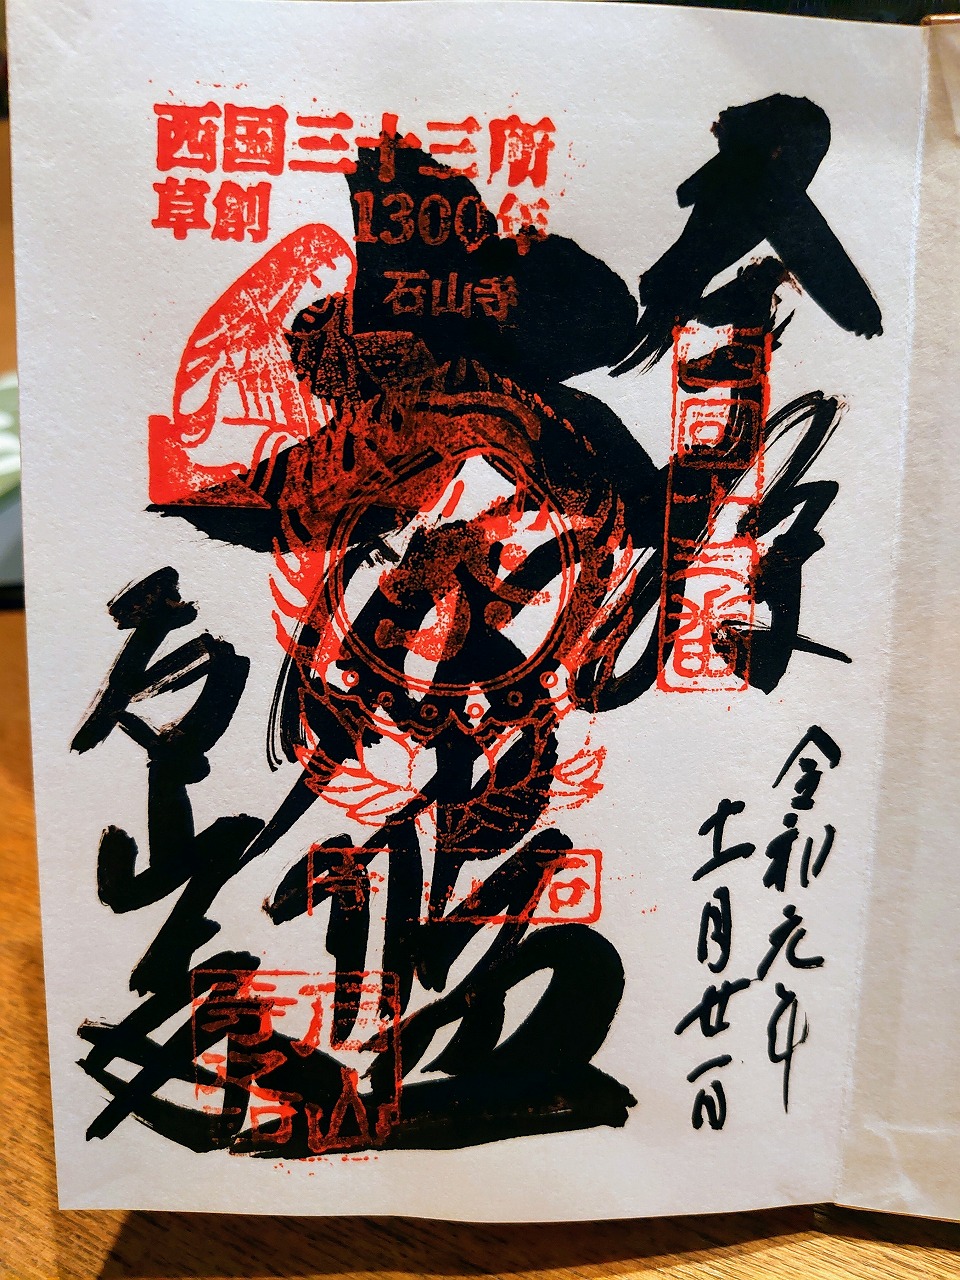 西國三十三所
草創 1300年
石山寺
奉拝
西國十三番
令和元年
十一月廿一日
石山寺